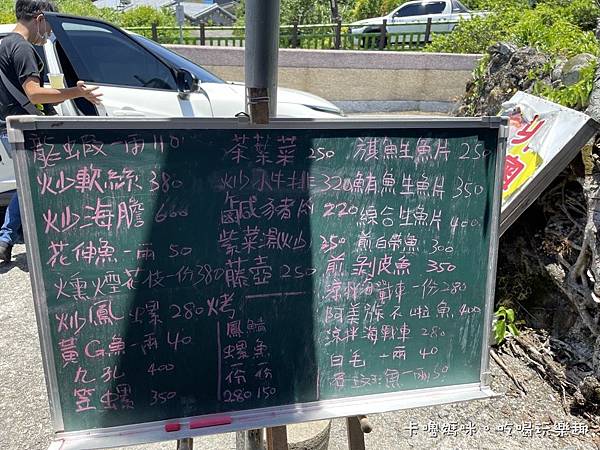 龍蝦一兩110
炒軟絲 380
炒海膽 600
花伸魚一兩 50
燻煙花枝一份380
炒鳳螺 280
黃G魚一兩40
九孔 400
笠螺 350
茶葉菜 250
炒水牛 320
鹹豬肉 220
紫菜湯(炒) 250
藤壺 250
烤
鳳螺一份280
鯖魚一份150
旗魚生魚片 250
鮪魚生魚片 350
綜合生魚片 400
煎白帶魚 300
煎剝皮魚 350
涼拌海戰車一份280
阿美族不啦魚 400
涼拌海戰車 280
白毛 一兩 40
魚一兩50
卡嚕媽咪。吃喝玩樂趣